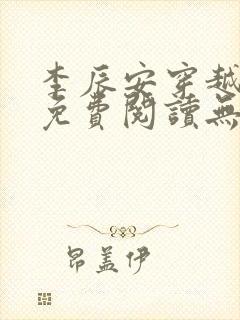 李辰安穿越
免費閱讀無
昂蓋伊